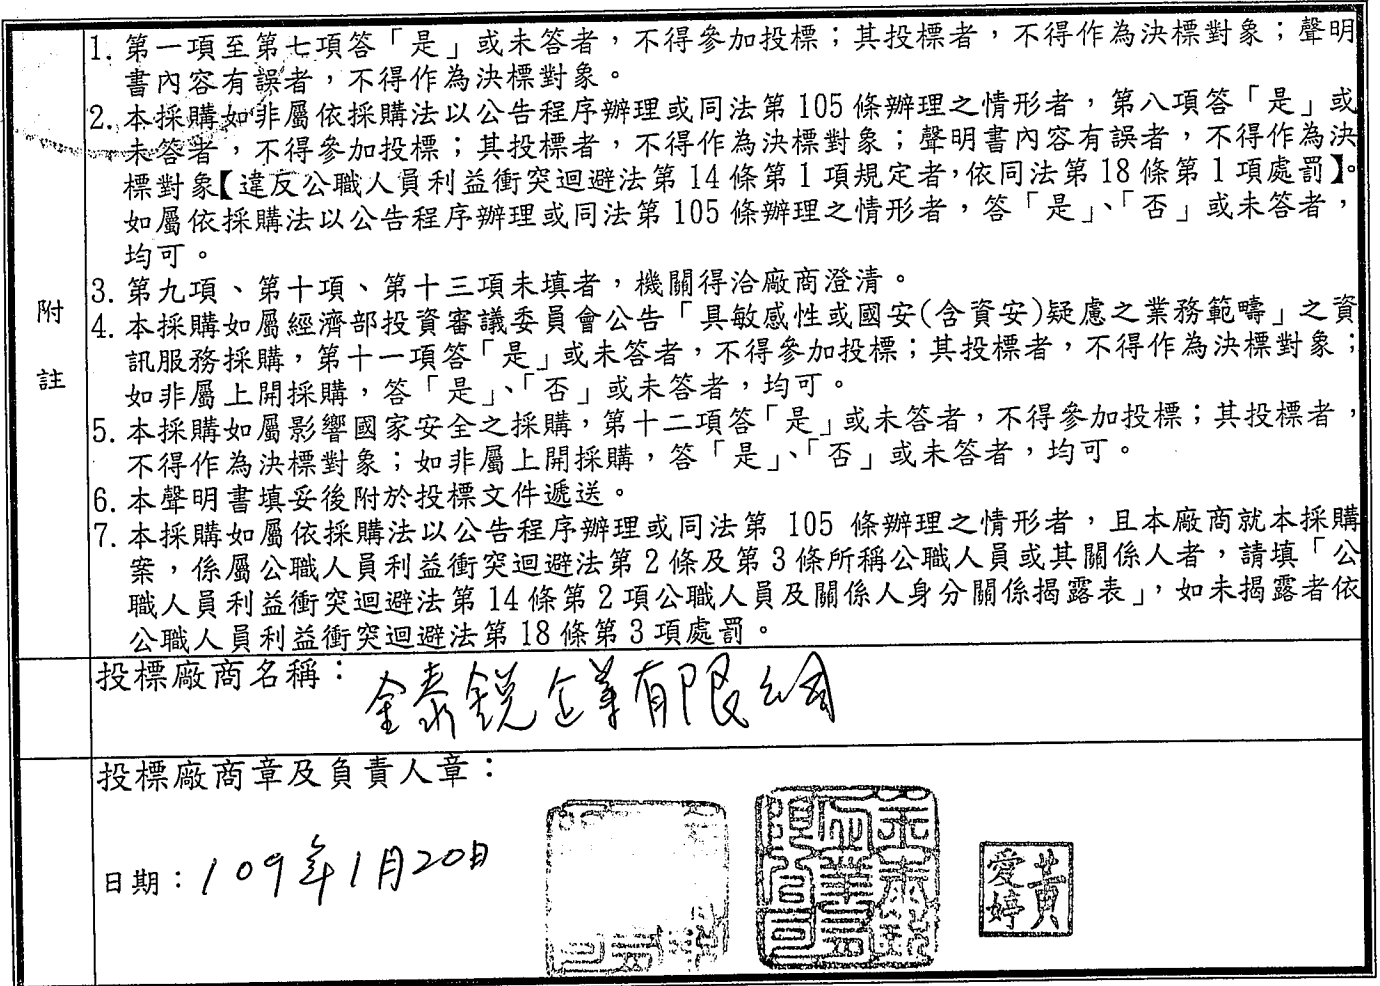 1. 第一項至第七項答「是」或未答者，不得參加投標；其投標者，不得作為決標對象；聲明
書內容有誤者，不得作為決標對象。
2. 本採購如非屬依採購法以公告程序辦理或同法第 105 條辦理之情形者，第八項答「是」或
未答者，不得參加投標；其投標者，不得作為決標對象；聲明書內容有誤者，不得作為決
標對象【違反公職人員利益衝突迴避法第 14 條第 1 項規定者，依同法第 18 條第 1 項處罰】。
如屬依採購法以公告程序辦理或同法第 105 條辦理之情形者，答「是」、「否」或未答者，
均可。
3. 第九項、第十項、第十三項未填者，機關得洽廠商澄清。
附
4. 本採購如屬經濟部投資審議委員會公告「具敏感性或國安(含資安)疑慮之業務範疇」之資
訊服務採購，第十一項答「是」或未答者，不得參加投標；其投標者，不得作為決標對象；
註
如非屬上開採購，答「是」、「否」或未答者，均可。
5. 本採購如屬影響國家安全之採購，第十二項答「是」或未答者，不得參加投標；其投標者，
不得作為決標對象；如非屬上開採購，答「是」、「否」或未答者，均可。
6. 本聲明書填妥後附於投標文件遞送。
7. 本採購如屬依採購法以公告程序辦理或同法第 105 條辦理之情形者，且本廠商就本採購
案，係屬公職人員利益衝突迴避法第 2 條及第 3 條所稱公職人員或其關係人者，請填「公
職人員利益衝突迴避法第 14 條第 2 項公職人員及關係人身分關係揭露表」，如未揭露者依
公職人員利益衝突迴避法第 18 條第 3 項處罰。
投標廠商名稱：
金泰銳企業有限公司
投標廠商章及負責人章：
金泰銳企業有限公司
黃愛婷
日期：109年1月20日